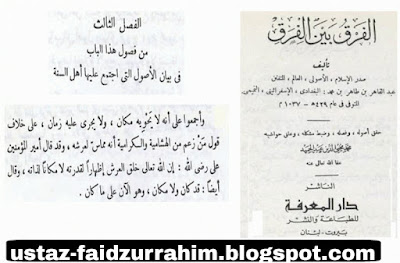 الفصل الثالث
من فصول هذا الباب
فى بيان الأصول التى اجتمع عليها أهل السنة
وأجمعوا على أنه لا يَحْوِيه مكان ، ولا يجرى عليه زمان ، على خلاف
قول مَنْ زعم من الهشامية والكرامية أنه مماسّ لعرشه ، وقد قال أمير المؤمنين
على رضى الله : إن الله تعالى خلق العرش إظهاراً لقدرته لا مكاناً لذاته ، وقال
أيضاً : قد كان ولا مكان ، وهو الآن على ما كان .
الفَرْقُ بَيْنَ الْفِرَقِ
تأليف
صدر الإسلام ، الأصولى ، العالم ، المتفنن
عبد القاهر بن طاهر بن محمد ، البغدادى ، الإسفرائينى ، التميمى
المتوفى فى عام ٤٢٩هـ - ١٠٣٧م
حقق أصوله ، وفصله ، وضبط مشكله ، وعلق حواشيه
محمد محيى الدين عبد الحميد
عفا الله تعالى عنه
الناشر
دار المعرفة
للطباعة والنشر
بيروت - لبنان
ustaz-faidzurrahim.blogspot.com